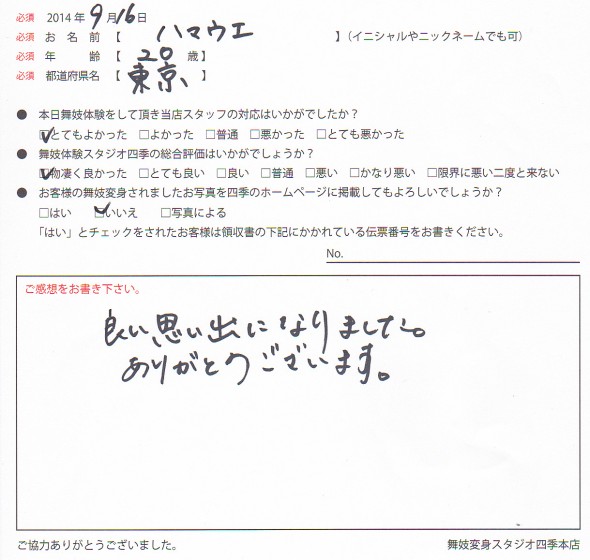 必須 2014 年 9月 16日
必須 お 名 前 【 ハマウエ 】（イニシャルやニックネームでも可）
必須 年 齢 【 20 歳】
必須 都道府県名 【 東京、 】
● 本日舞妓体験をして頂き当店スタッフの対応はいかがでしたか？
☑とてもよかった □よかった □普通 □悪かった □とても悪かった
● 舞妓体験スタジオ四季の総合評価はいかがでしょうか？
☑物凄く良かった □とても良い □良い □普通 □悪い □かなり悪い □限界に悪い二度と来ない
● お客様の舞妓変身されましたお写真を四季のホームページに掲載してもよろしいでしょうか？
□はい ☑いいえ □写真による
「はい」とチェックをされたお客様は領収書の下記にかかれている伝票番号をお書きください。
No.
ご感想をお書き下さい。
良い思い出になりました。
ありがとうございます。
ご協力ありがとうございました。 舞妓変身スタジオ四季本店